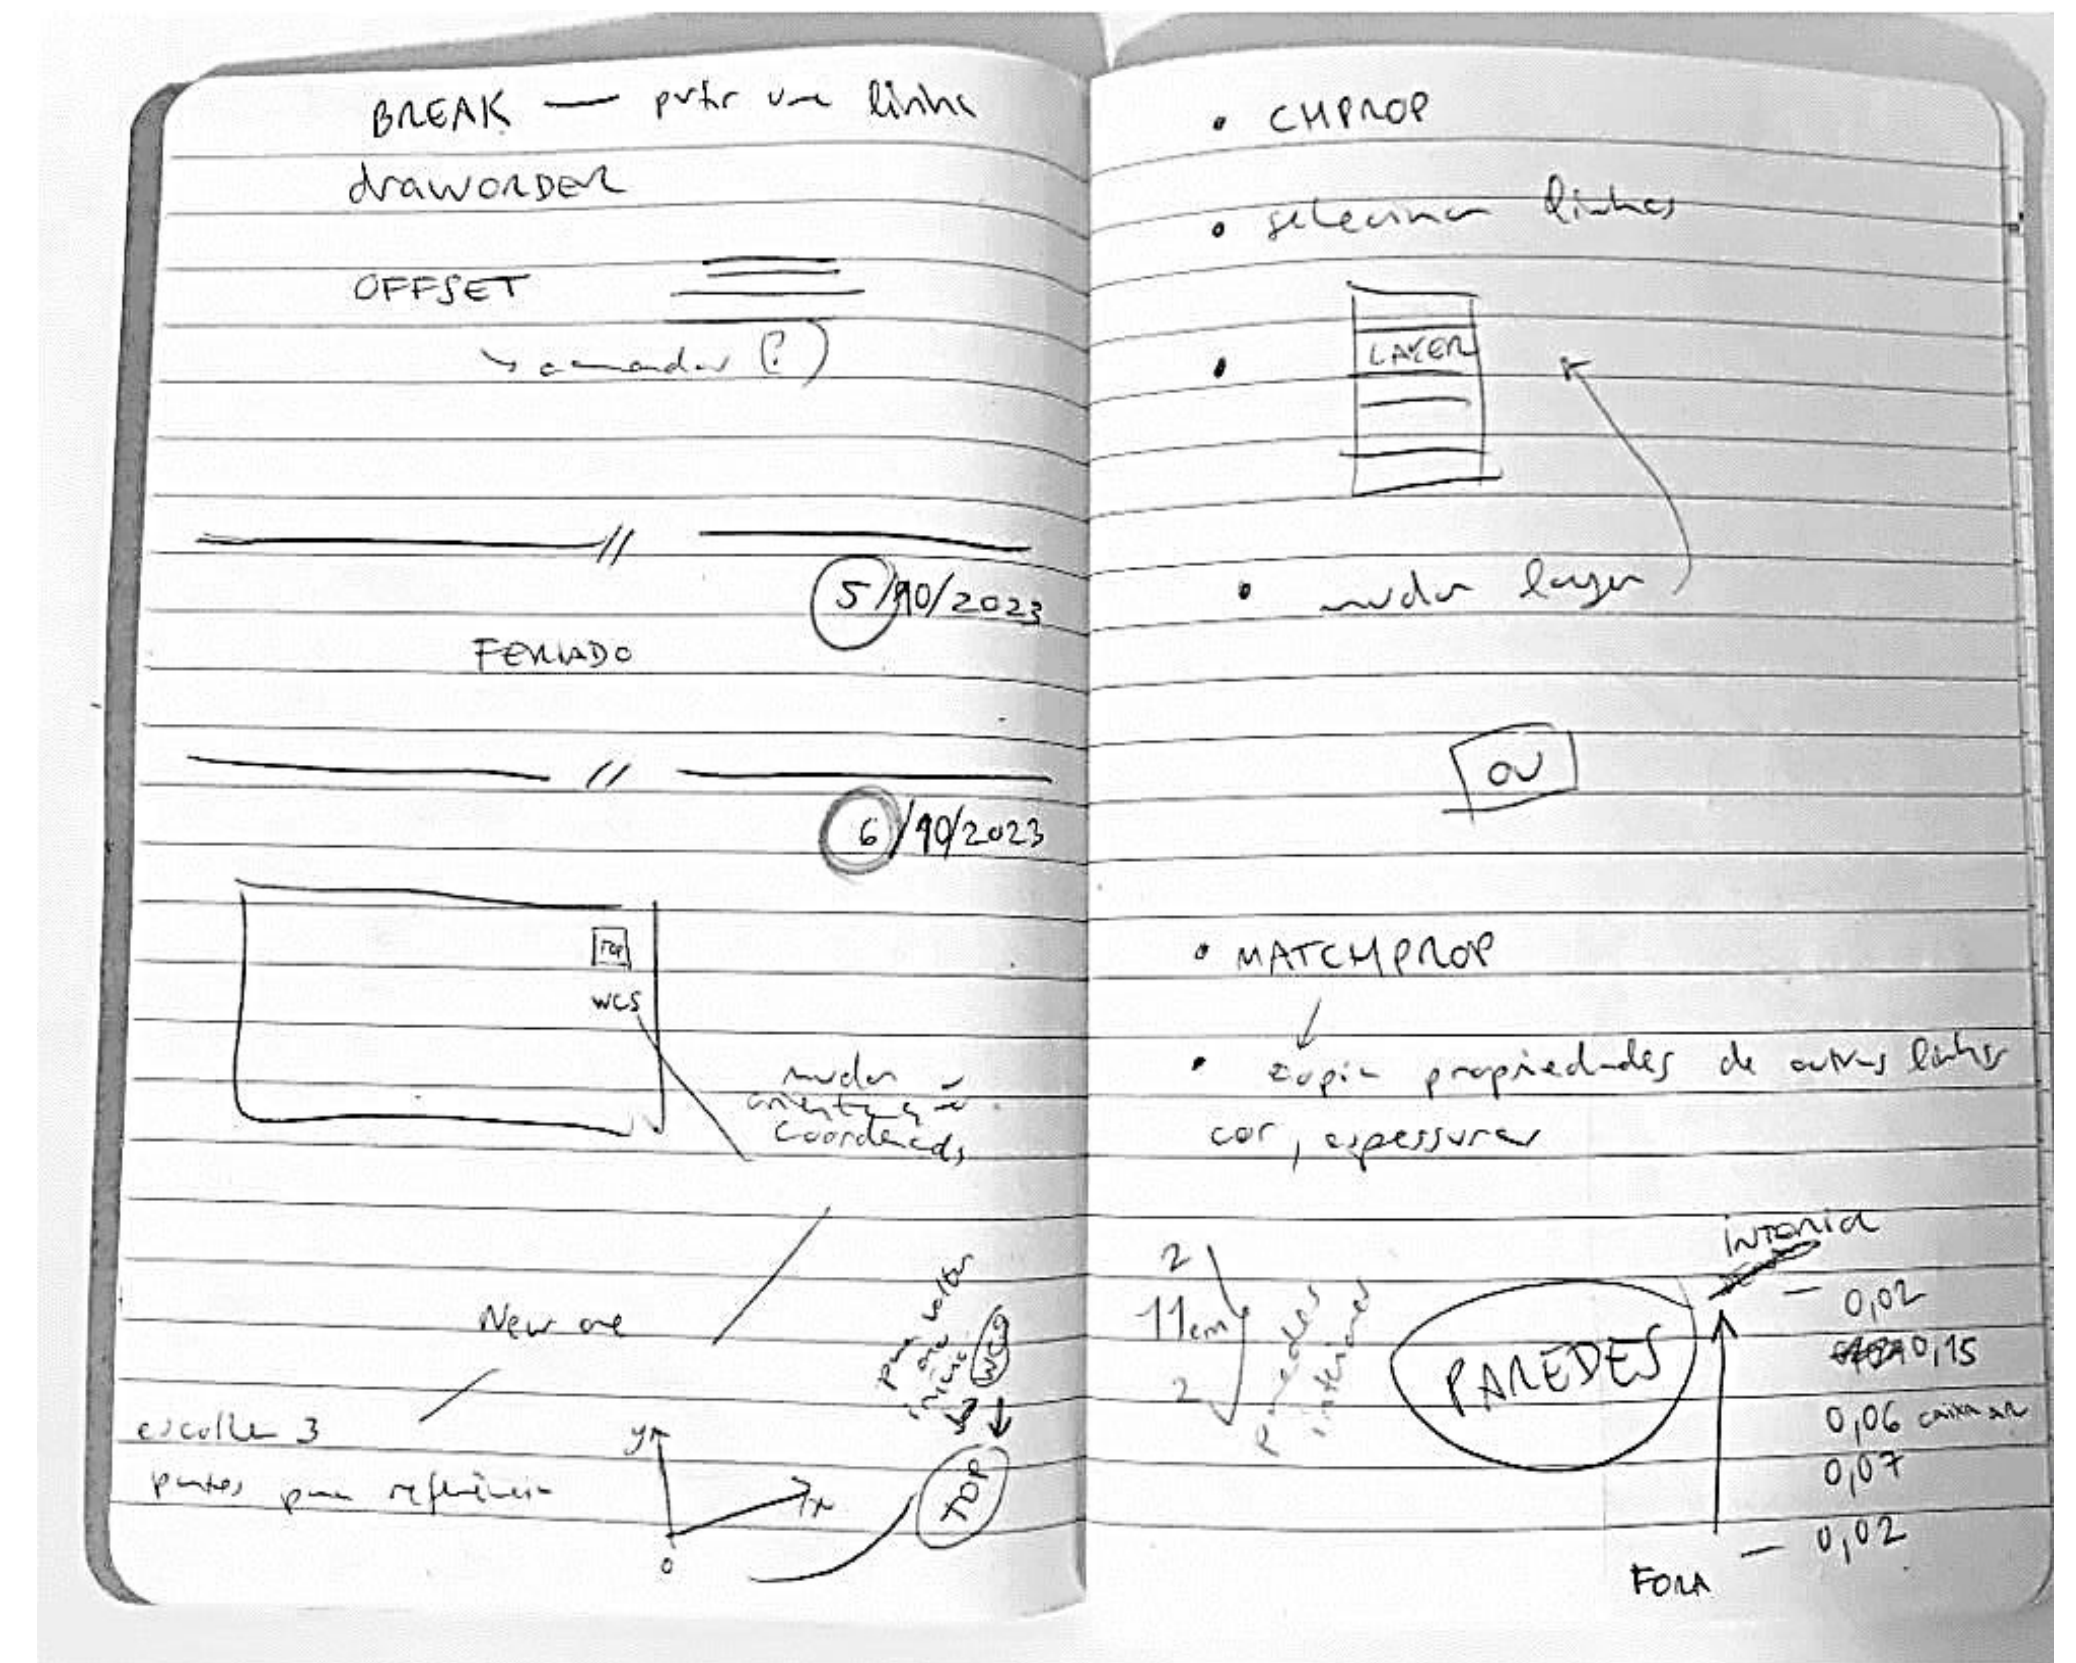 BREAK — partir uma linha
draworder
OFFSET
(?)
5/10/2023
FERIADO
6/10/2023
TOP
WCS
mudar
orientação
coordenadas
New one
para voltar
ao
início
WCS
TOP
escolher 3
pontos para referência
y
x
0
• CHPROP
• selecionar linhas
• LAYER
• mudar layer
OU
• MATCHPROP
• copia propriedades de outras linhas
cor, espessuras
2
11cm
2
paredes
interiores
PAREDES
INTERIOR
— 0,02
0,15
0,06 caixa ar
0,07
— 0,02
FORA